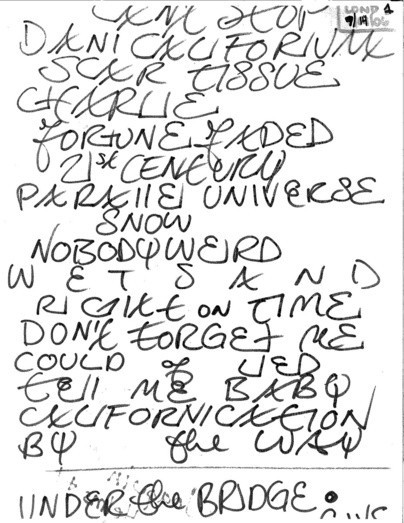 CAN'T STOP
LOND 1
7/19/06
DANI CALIFORNIA
SCAR TISSUE
CHARLIE
FORTUNE FADED
21st CENTURY
PARALLEL UNIVERSE
SNOW
NOBODY WEIRD
WET SAND
RIGHT ON TIME
DON'T FORGET ME
COULD OF LIED
TELL ME BABY
CALIFORNICATION
BY the WAY
UNDER the BRIDGE